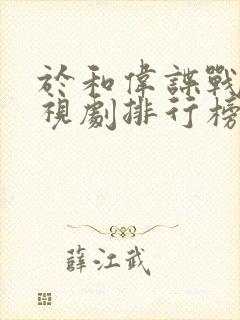 於和偉諜戰
視劇排行榜
薛江武